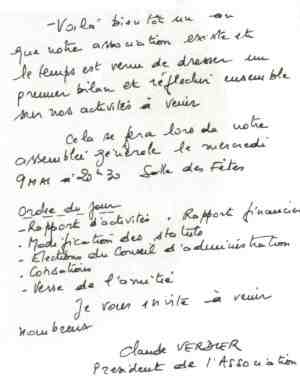 -Voilà bientôt un an
que notre association existe et
le temps est venu de dresser un
premier bilan et réfléchir ensemble
sur nos activités à venir
Cela se fera lors de notre
assemblée générale le mercredi
9 MAI à 20h30 Salle des Fêtes
Ordre du jour
- Rapport d'activités . Rapport financier
- Modification des statuts
- Elections du Conseil d'administration
- Cotisations
- Verre de l'amitié
Je vous invite à venir
nombreux
Claude VERDIER
President de l'Association